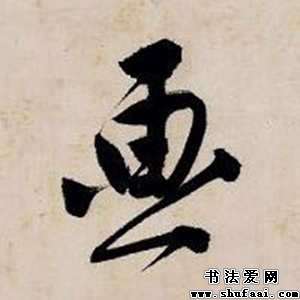 画
书法爱网
www.shufaai.com